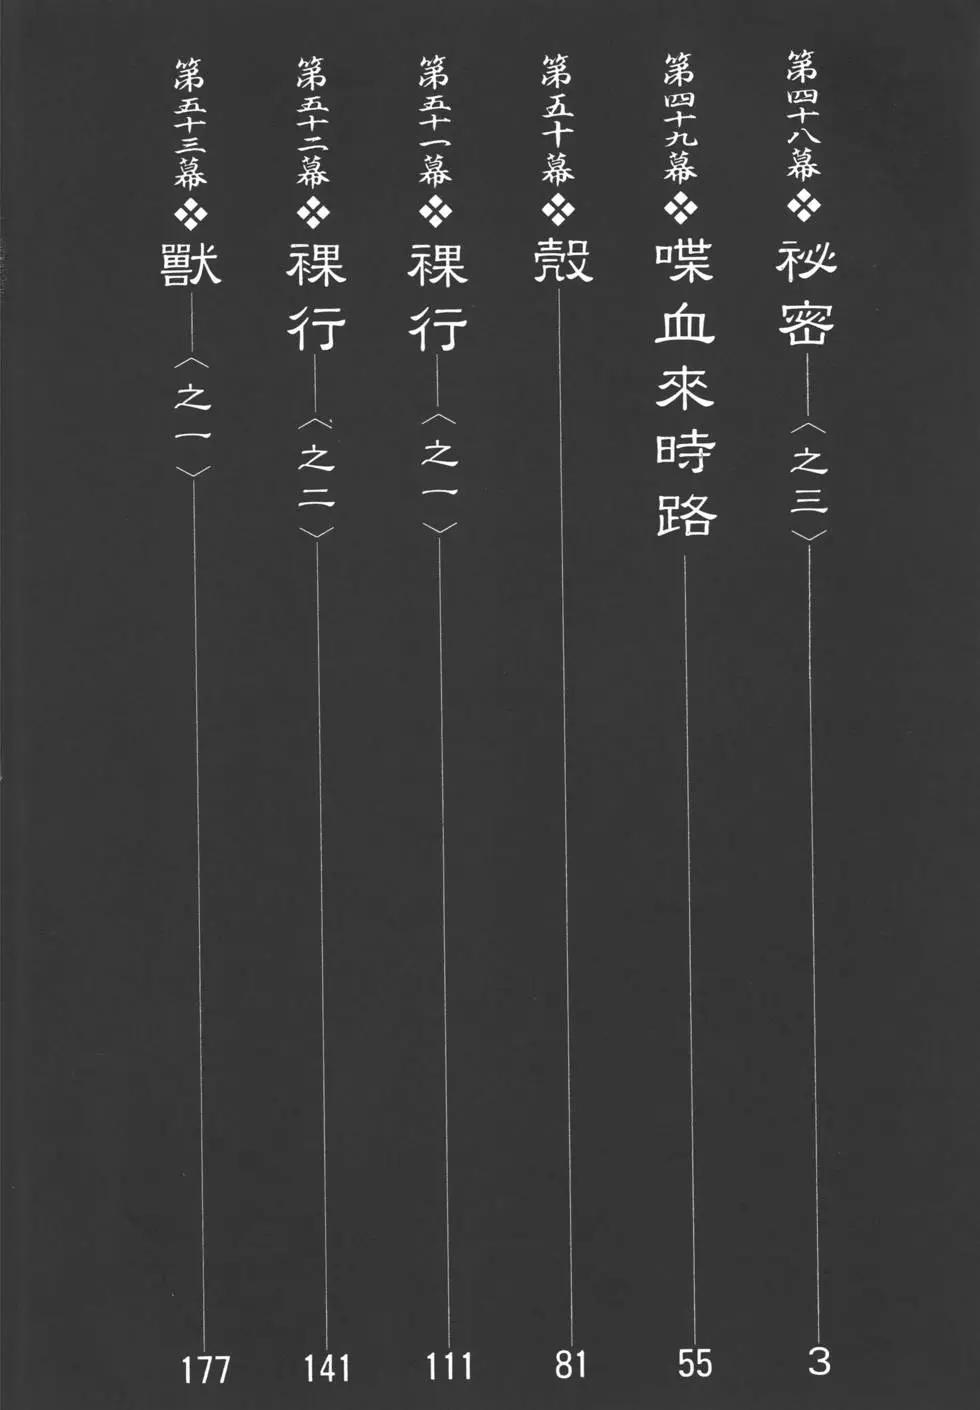 第四十八幕❖祕密〈之三〉3
第四十九幕❖喋血來時路55
第五十幕❖殼81
第五十一幕❖裸行〈之一〉111
第五十二幕❖裸行〈之二〉141
第五十三幕❖獸〈之一〉177